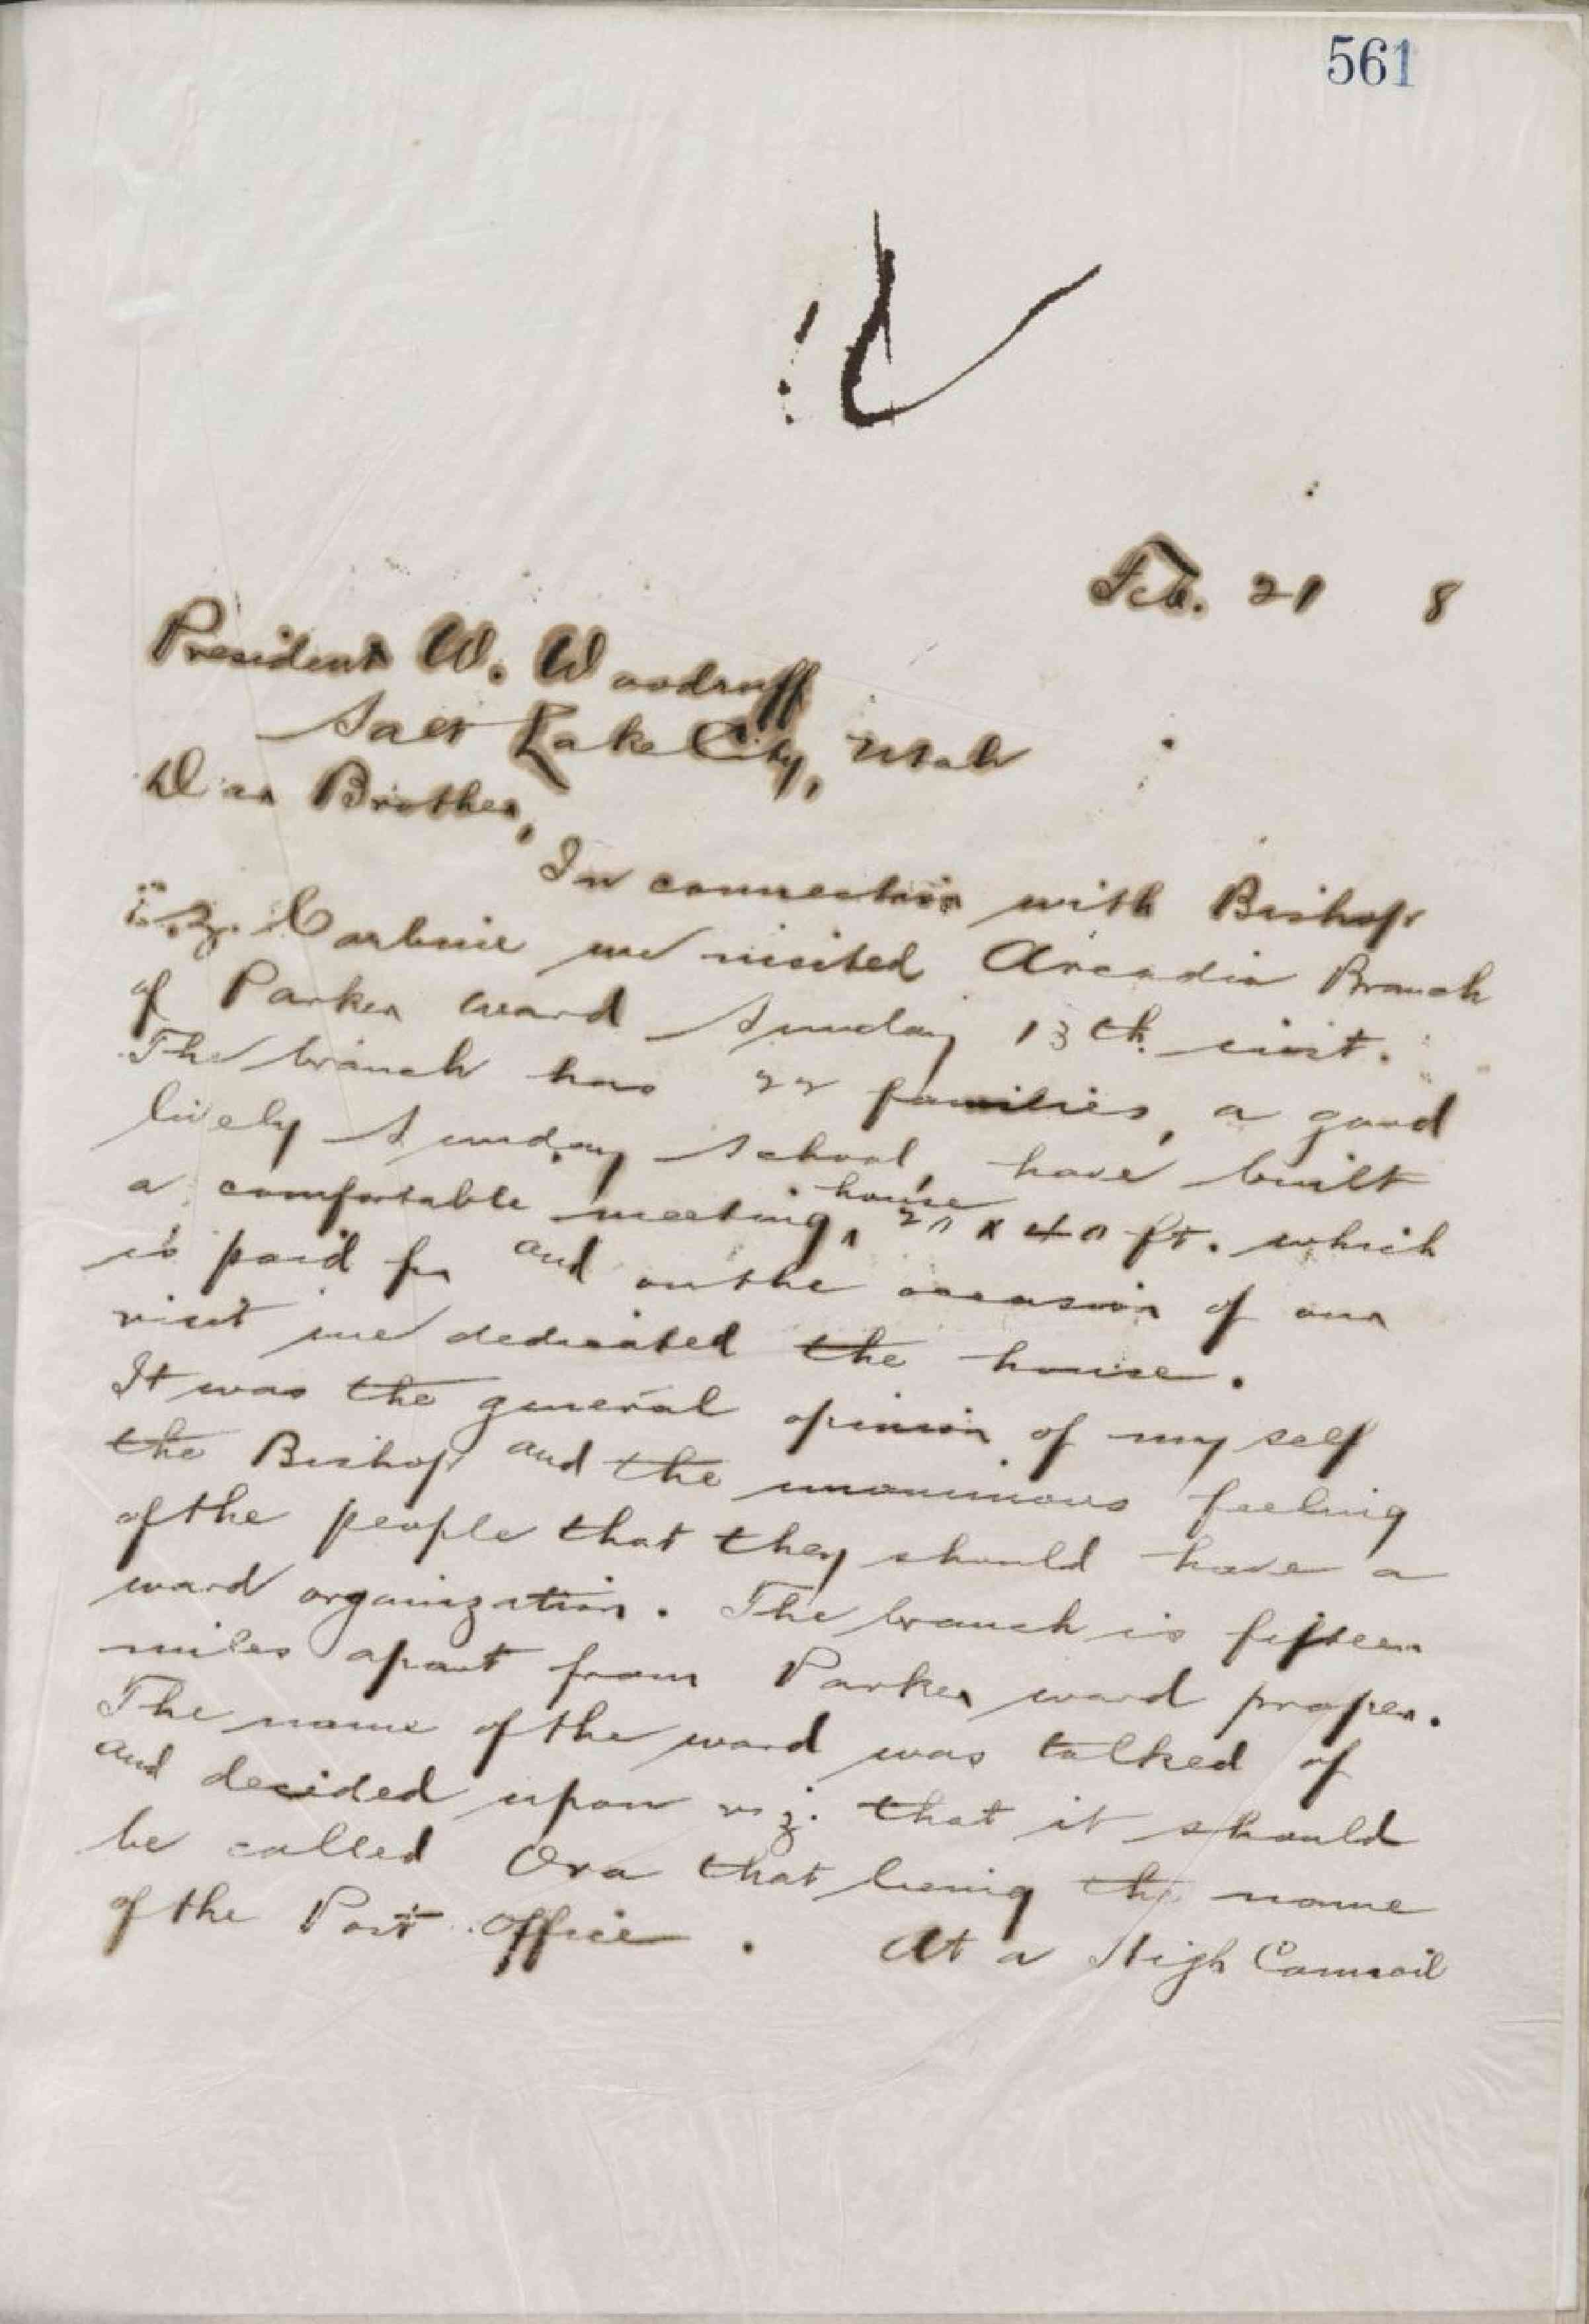 561
Feb. 21 8
President W. Woodruff
Salt Lake City, Utah
Dear Brother,
In connection with Bishop
we visited Arcadia Branch
of Parker ward Sunday 13th. inst.
The branch has 22 families, a good
lively Sunday School, have built
a comfortable meeting ^house 20 x 40 ft. which
is paid for and on the occasion of our
visit we dedicated the house.
It was the general opinion of my self
the Bishop and the unanimous feeling
of the people that they should have a
ward organization. The branch is fifteen
miles apart from Parker ward proper.
The name of the ward was talked of
and decided upon viz. that it should
be called Ora that being the name
of the Post office. At a High Council